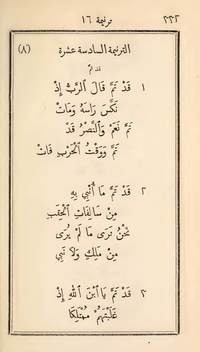 ٢٢٢ ترنيمة ١٦
الترنيمة السادسة عشرة (٨)
قد تم
١ قَدْ تَمَّ قَالَ ٱلرَّبُّ إِذْ
نَكَّسَ رَاسَهُ وَمَاتْ
تَمَّ نَعَمْ وَٱلنَّصْرُ قَدْ
تَمَّ وَوَقْتُ ٱلْحَرْبِ فَاتْ
٢ قَدْ تَمَّ مَا أُنْبِي بِهِ
مِنْ سَالِفَاتِ ٱلْحِقَبِ
نَحْنُ نَرَى مَا لَمْ يُرَى
مِنْ مَلِكٍ وَلَا نَبِي
٣ قَدْ تَمَّ يَا ٱبْنَ ٱللهِ إِذْ
غَلَبْتَهُمْ